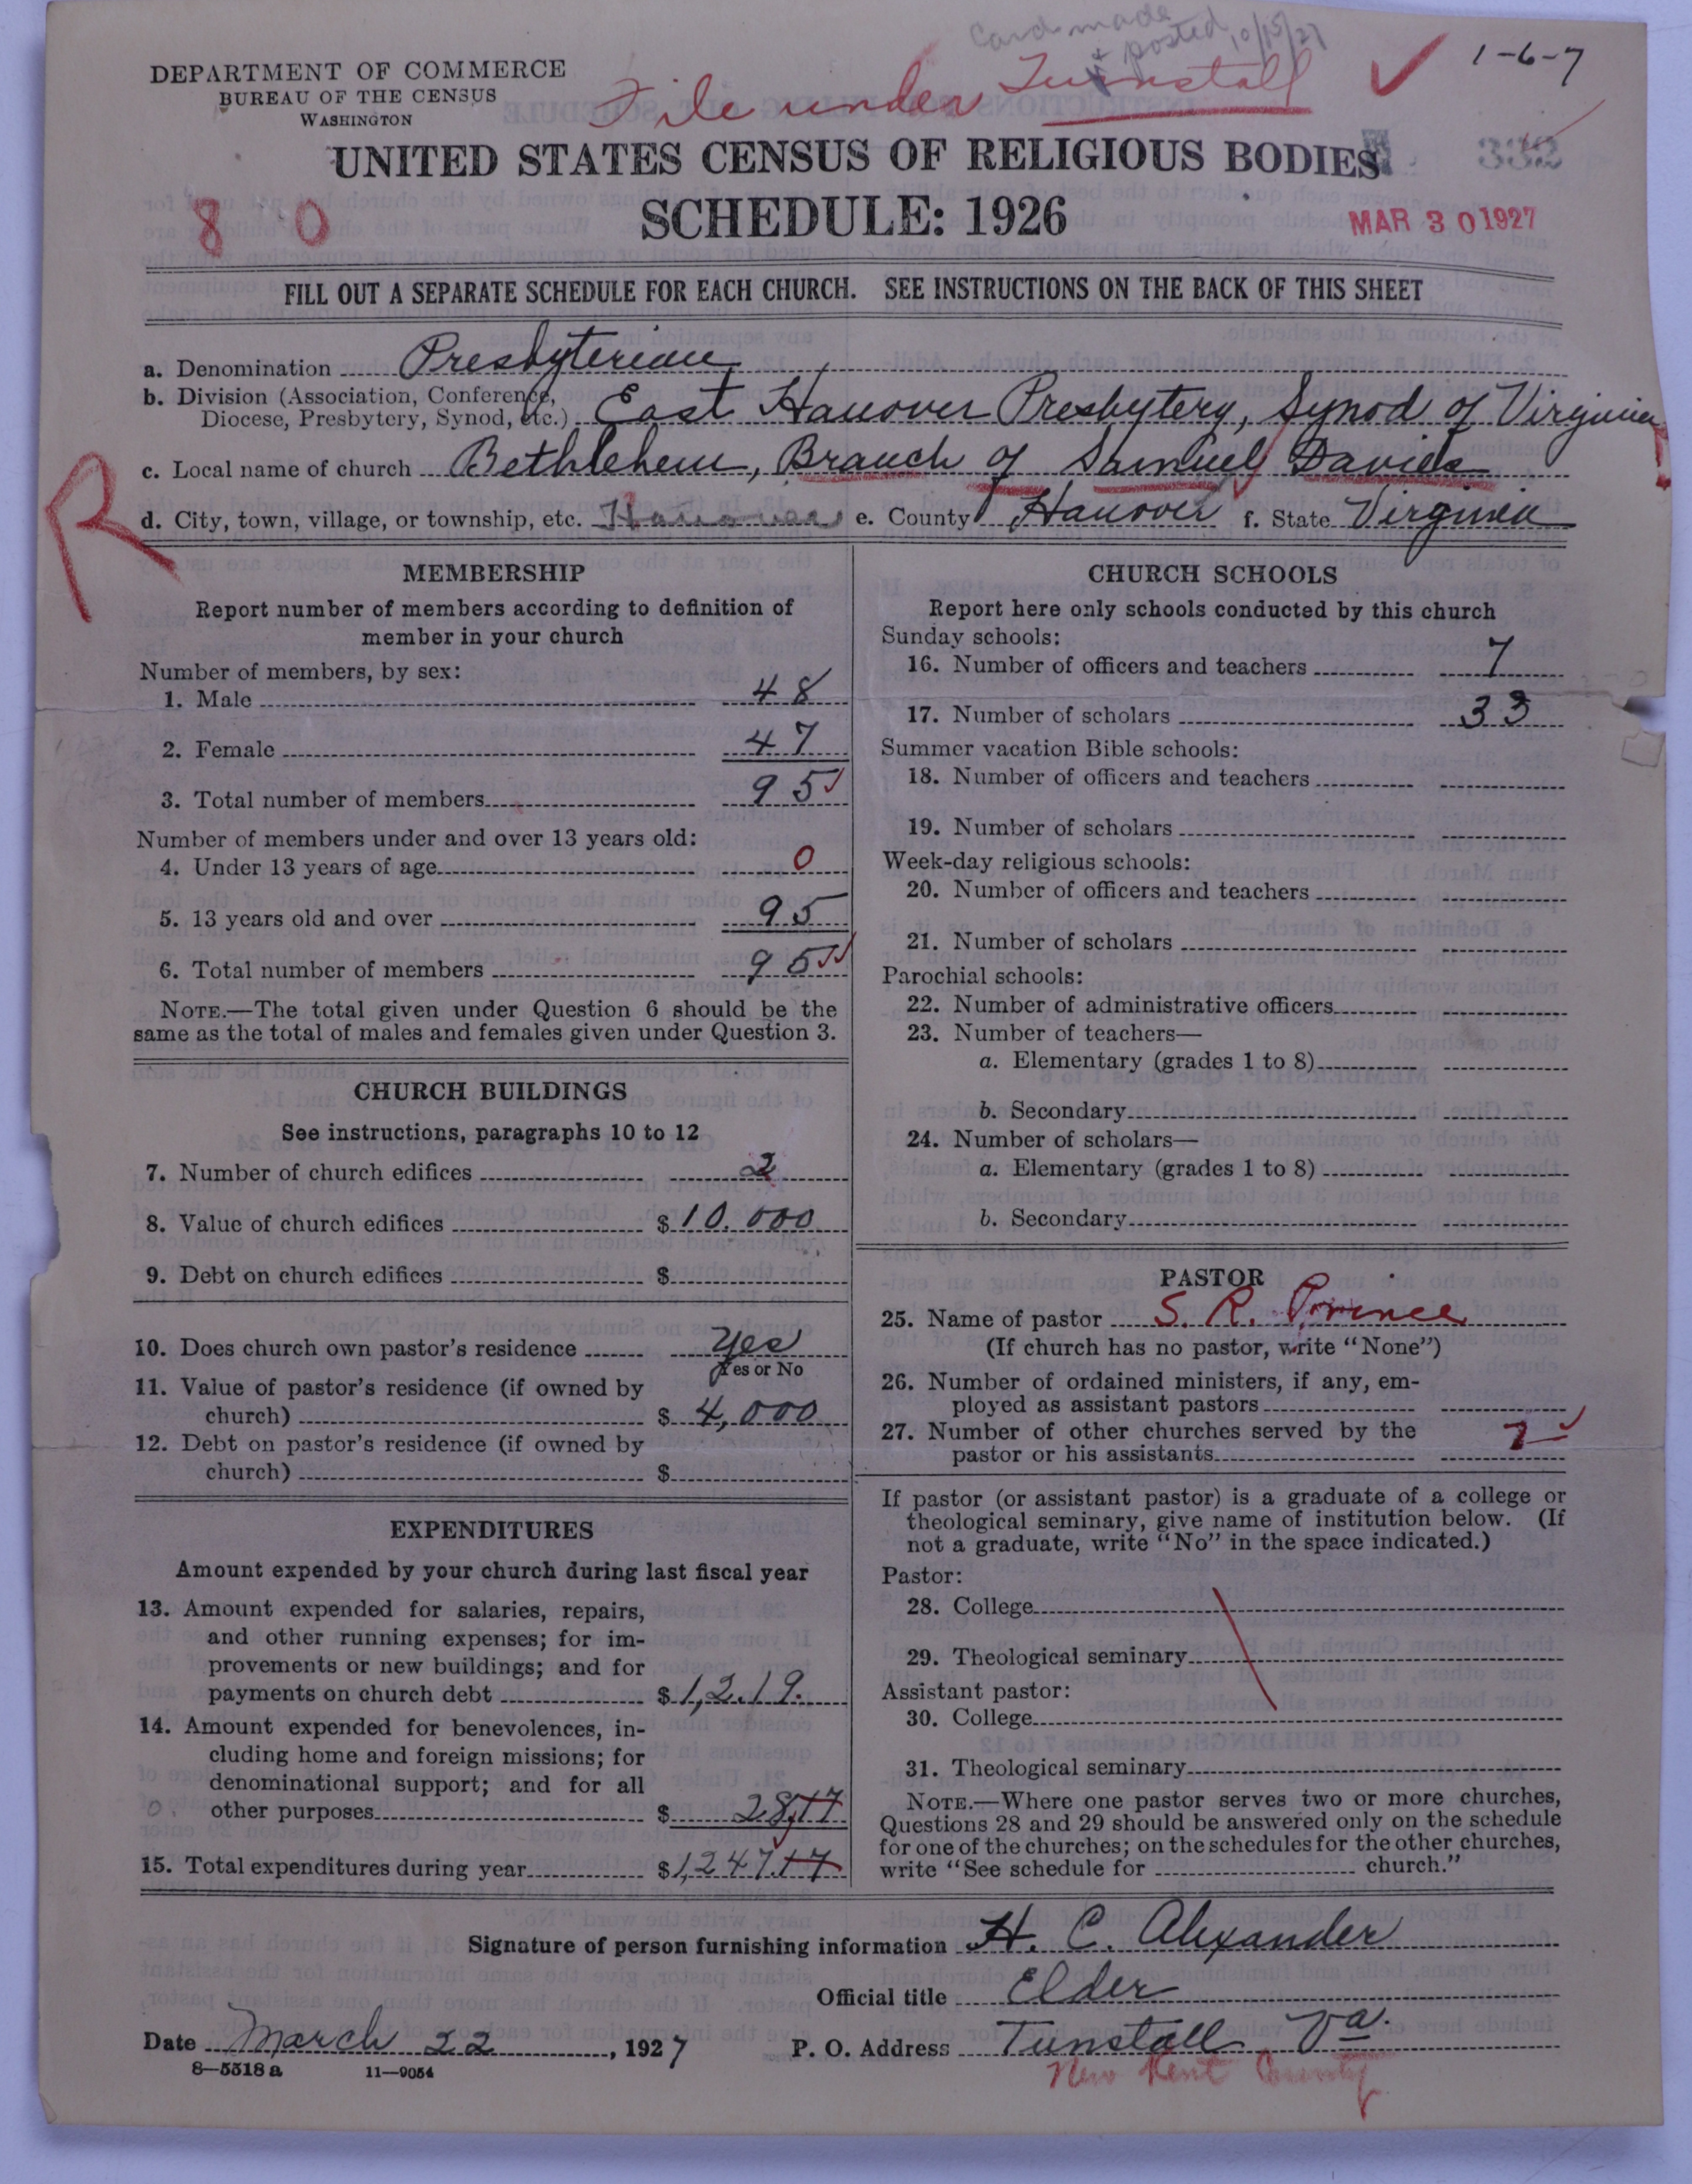 Card made
& posted 10/15/27
1-6-7
DEPARTMENT OF COMMERCE
BUREAU OF THE CENSUS
WASHINGTON
File under Tunstall
UNITED STATES CENSUS OF RELIGIOUS BODIES
332
SCHEDULE: 1926
8 0
MAR 30 1927
FILL OUT A SEPARATE SCHEDULE FOR EACH CHURCH. SEE INSTRUCTIONS ON THE BACK OF THIS SHEET
a. Denomination Presbyterian
b. Division (Association, Conference,
Diocese, Presbytery, Synod, etc.) East Hanover Presbytery, Synod of Virginia
c. Local name of church Bethlehem, Branch of Samuel Davies
R
d. City, town, village, or township, etc. Hanover e. County Hanover f. State Virginia
MEMBERSHIP
Report number of members according to definition of
member in your church
Number of members, by sex:
1. Male 48
2. Female 47
3. Total number of members 95
Number of members under and over 13 years old:
4. Under 13 years of age 0
5. 13 years old and over 95
6. Total number of members 95
NOTE.—The total given under Question 6 should be the
same as the total of males and females given under Question 3.
CHURCH BUILDINGS
See instructions, paragraphs 10 to 12
7. Number of church edifices 2
8. Value of church edifices $10.000
9. Debt on church edifices $
10. Does church own pastor's residence Yes
Yes or No
11. Value of pastor's residence (if owned by
church) $4,000
12. Debt on pastor's residence (if owned by
church) $
EXPENDITURES
Amount expended by your church during last fiscal year
13. Amount expended for salaries, repairs,
and other running expenses; for im-
provements or new buildings; and for
payments on church debt $1,219.
14. Amount expended for benevolences, in-
cluding home and foreign missions; for
denominational support; and for all
other purposes $28,17
15. Total expenditures during year $1,247.17
CHURCH SCHOOLS
Report here only schools conducted by this church
Sunday schools:
16. Number of officers and teachers 7
17. Number of scholars 33
Summer vacation Bible schools:
18. Number of officers and teachers
19. Number of scholars
Week-day religious schools:
20. Number of officers and teachers
21. Number of scholars
Parochial schools:
22. Number of administrative officers
23. Number of teachers—
a. Elementary (grades 1 to 8)
b. Secondary
24. Number of scholars—
a. Elementary (grades 1 to 8)
b. Secondary
PASTOR
25. Name of pastor S. R. Prince
(If church has no pastor, write "None")
26. Number of ordained ministers, if any, em-
ployed as assistant pastors
27. Number of other churches served by the
pastor or his assistants
If pastor (or assistant pastor) is a graduate of a college or
theological seminary, give name of institution below. (If
not a graduate, write "No" in the space indicated.)
Pastor:
28. College
29. Theological seminary
Assistant pastor:
30. College
31. Theological seminary
NOTE.—Where one pastor serves two or more churches,
Questions 28 and 29 should be answered only on the schedule
for one of the churches; on the schedules for the other churches,
write "See schedule for church."
Signature of person furnishing information H. C. Alexander
Official title Elder
Date March 22, 1927 P. O. Address Tunstall Va.
New Kent County
8—5518 a 11—9054